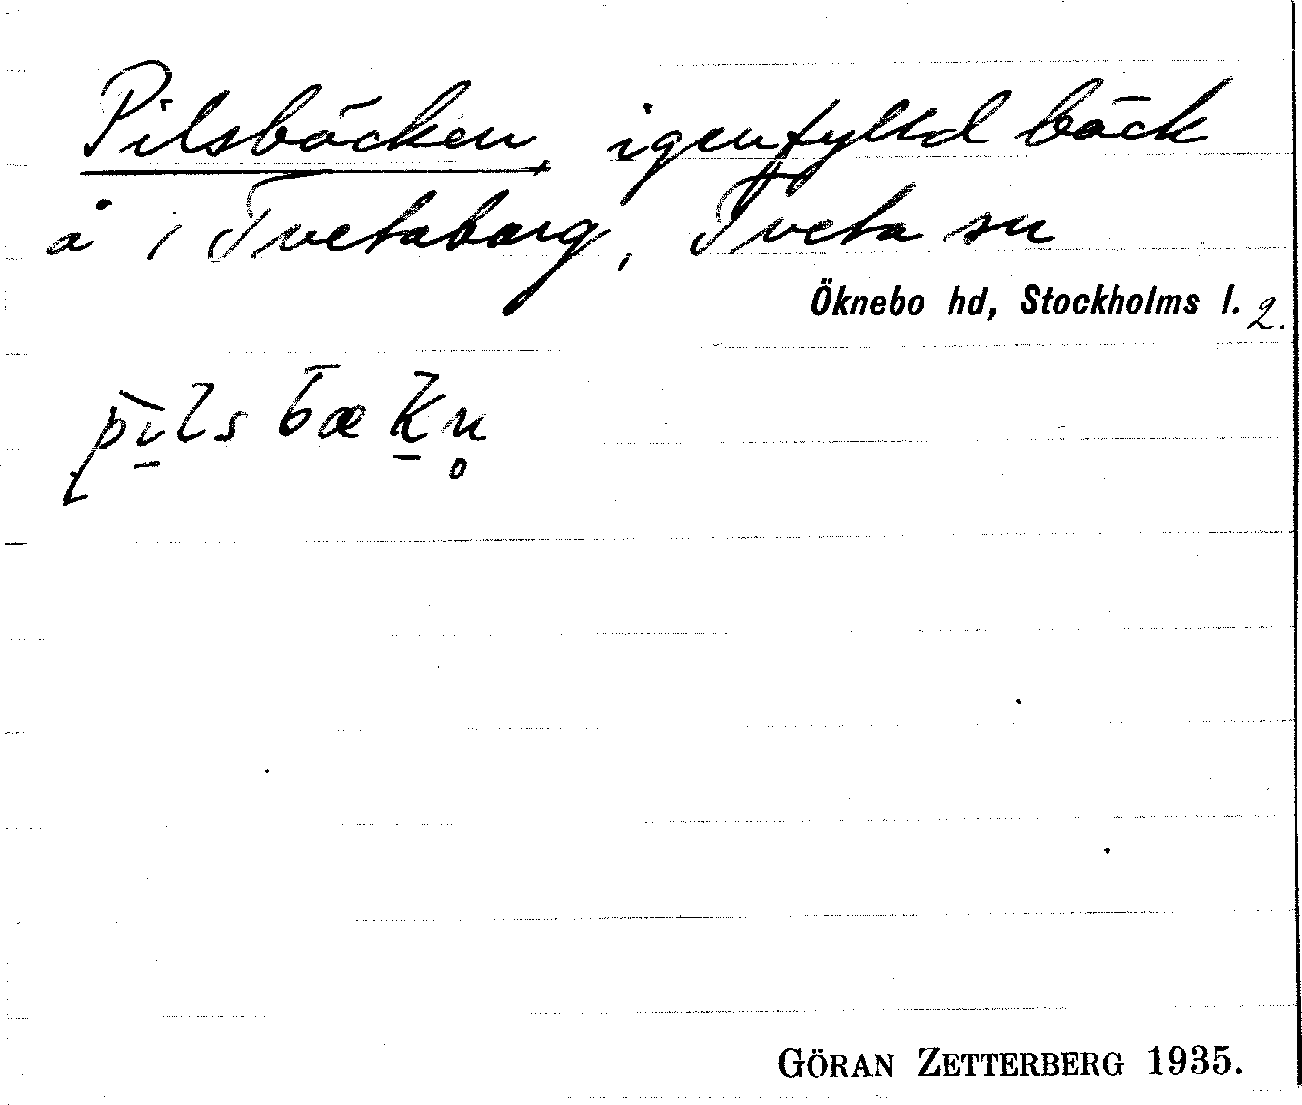 Pilsbäcken, igenfylld bäck
å i Tvetaberg, Tveta sn
Öknebo hd, Stockholms l. 2.
pi̱ls bæḵn̥
GÖRAN ZETTERBERG 1935.